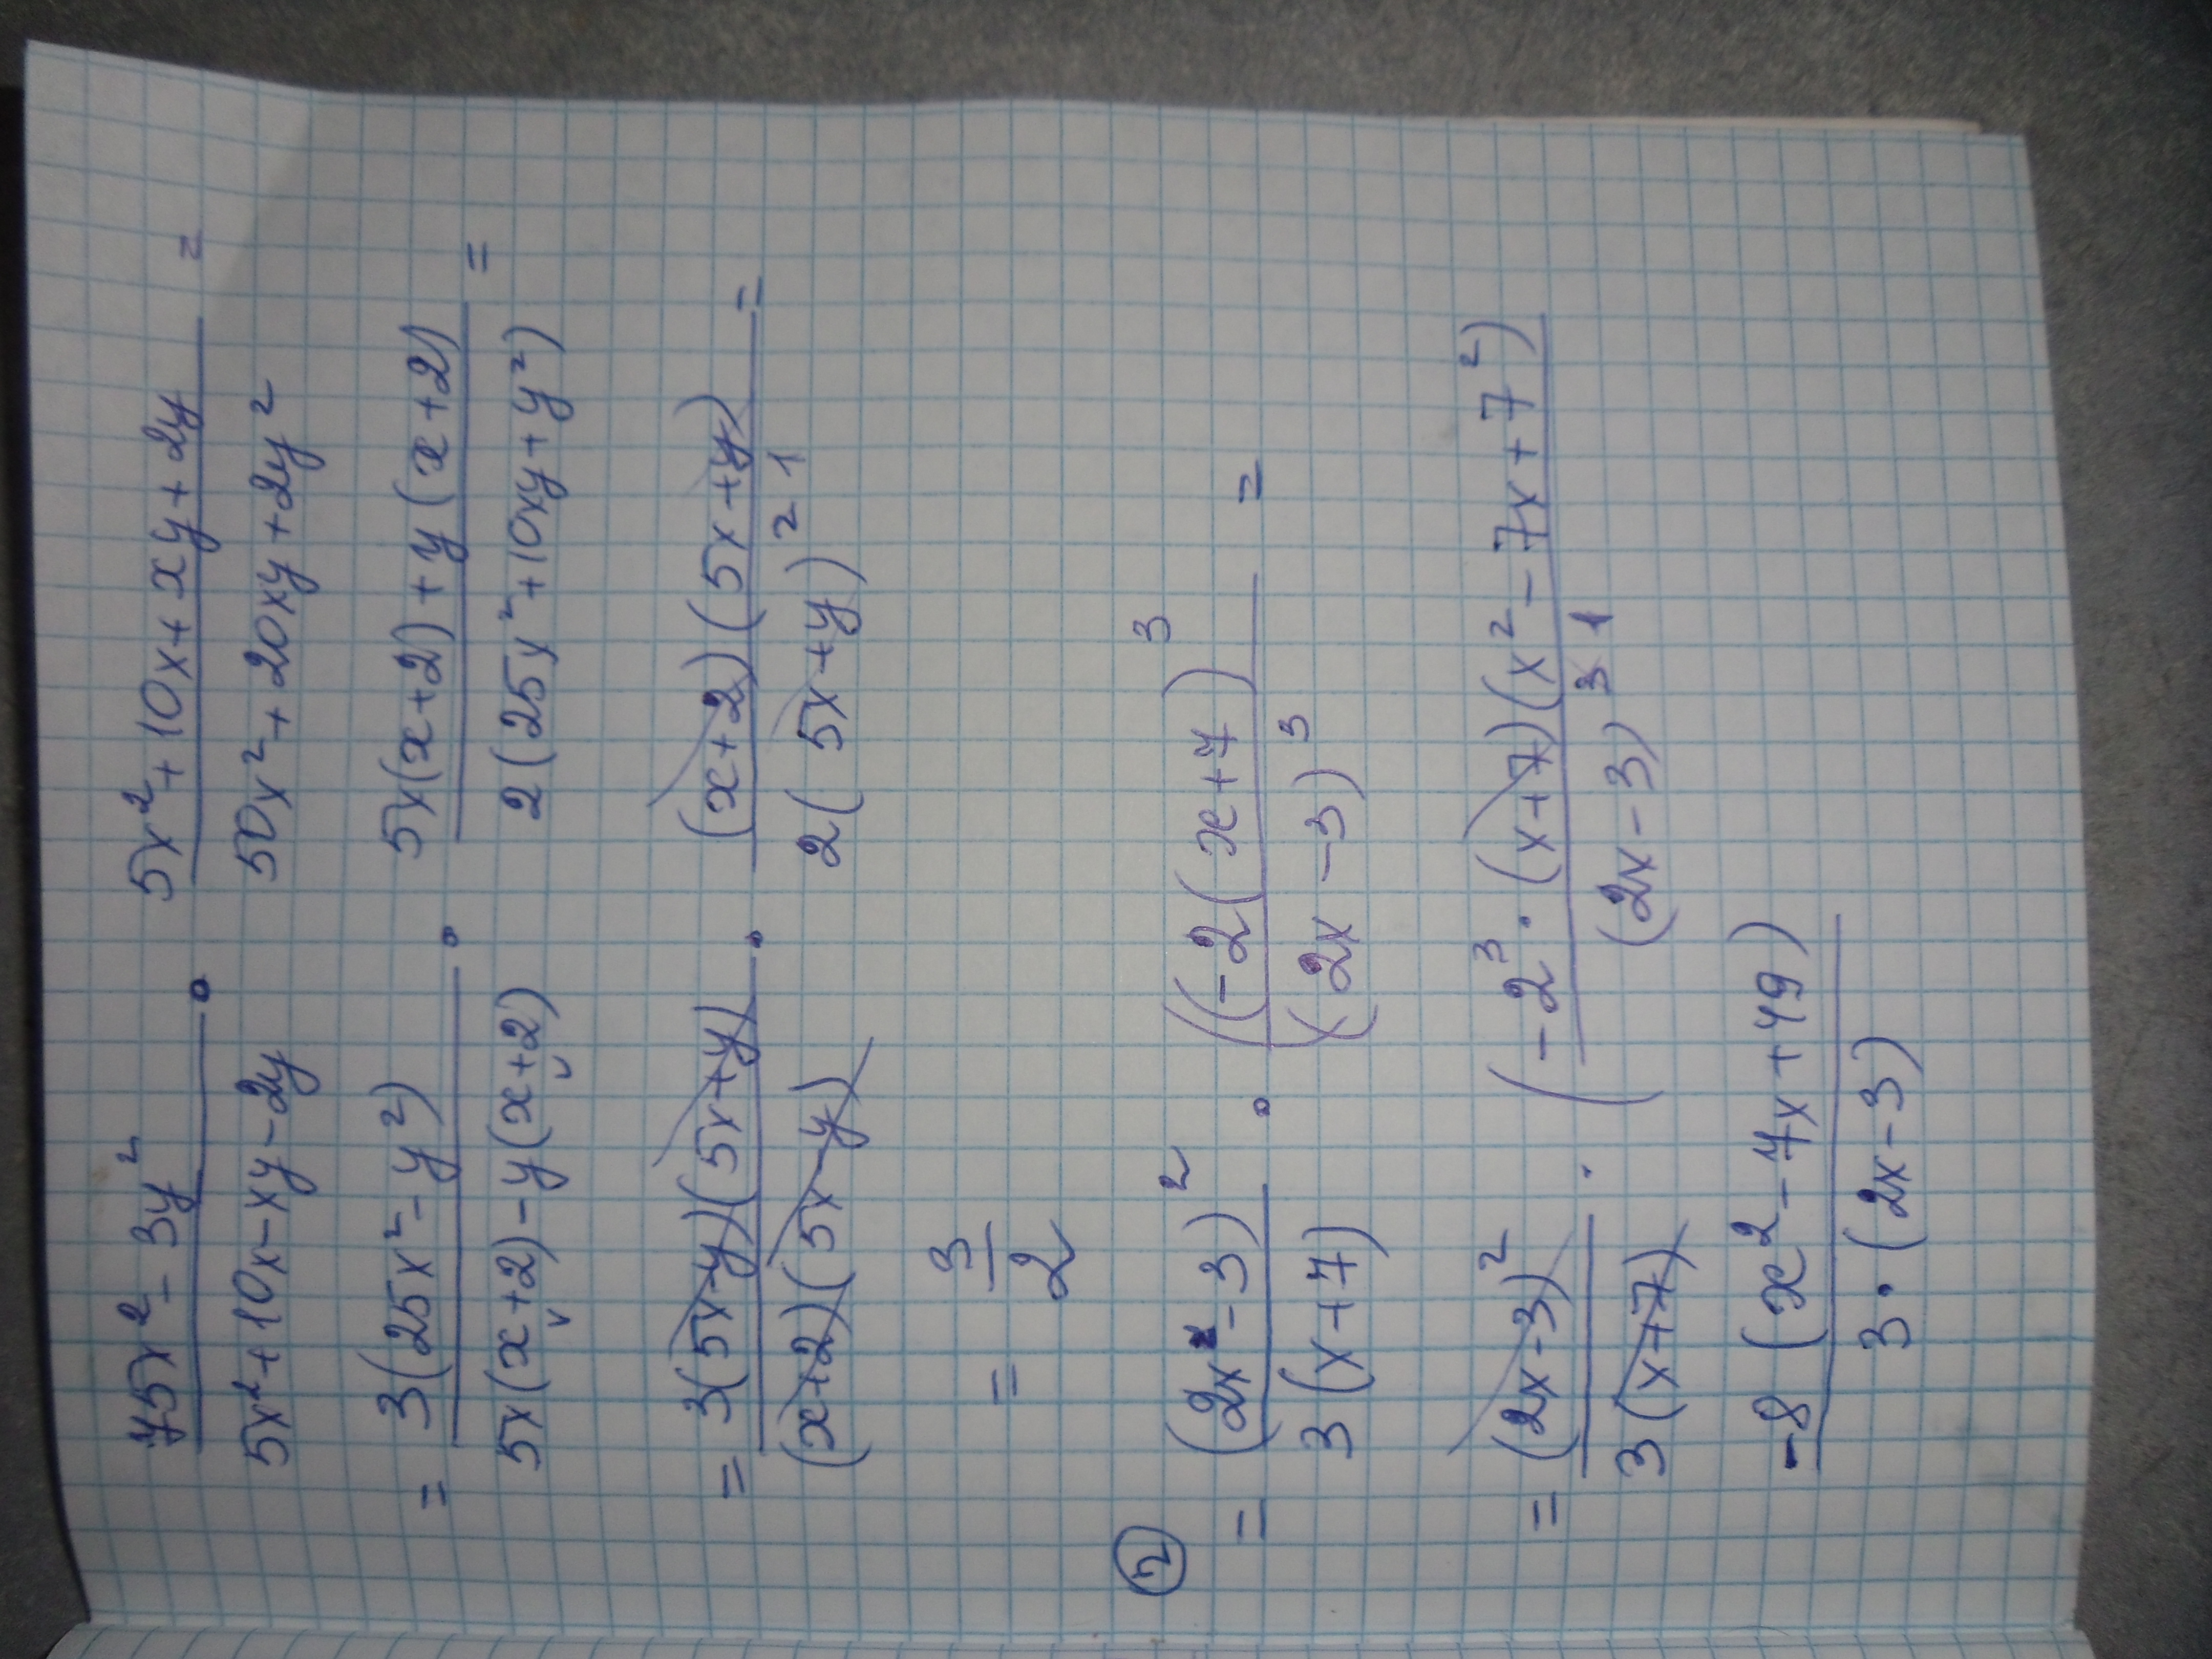 75x² - 3y² / 5x² + 10x - xy - 2y · 5x² + 10x + xy + 2y / 50x² + 20xy + 2y² =
= 3(25x² - y²) / 5x(x+2) - y(x+2) · 5x(x+2) + y(x+2) / 2(25y² + 10xy + y²) =
= 3(5x-y)(5x+y) / (x+2)(5x-y) · (x+2)(5x+y) / 2(5x+y)² 1 =
= 3/2
②
= (2x-3)² / 3(x+7) · ((-2(x+7)³ / (2x-3)³ =
= (2x-3)² / 3(x+7) · (-2³ · (x+7)(x² - 7x + 7²) / (2x-3)³ 1
-8 (x² - 7x + 49) / 3 · (2x-3)